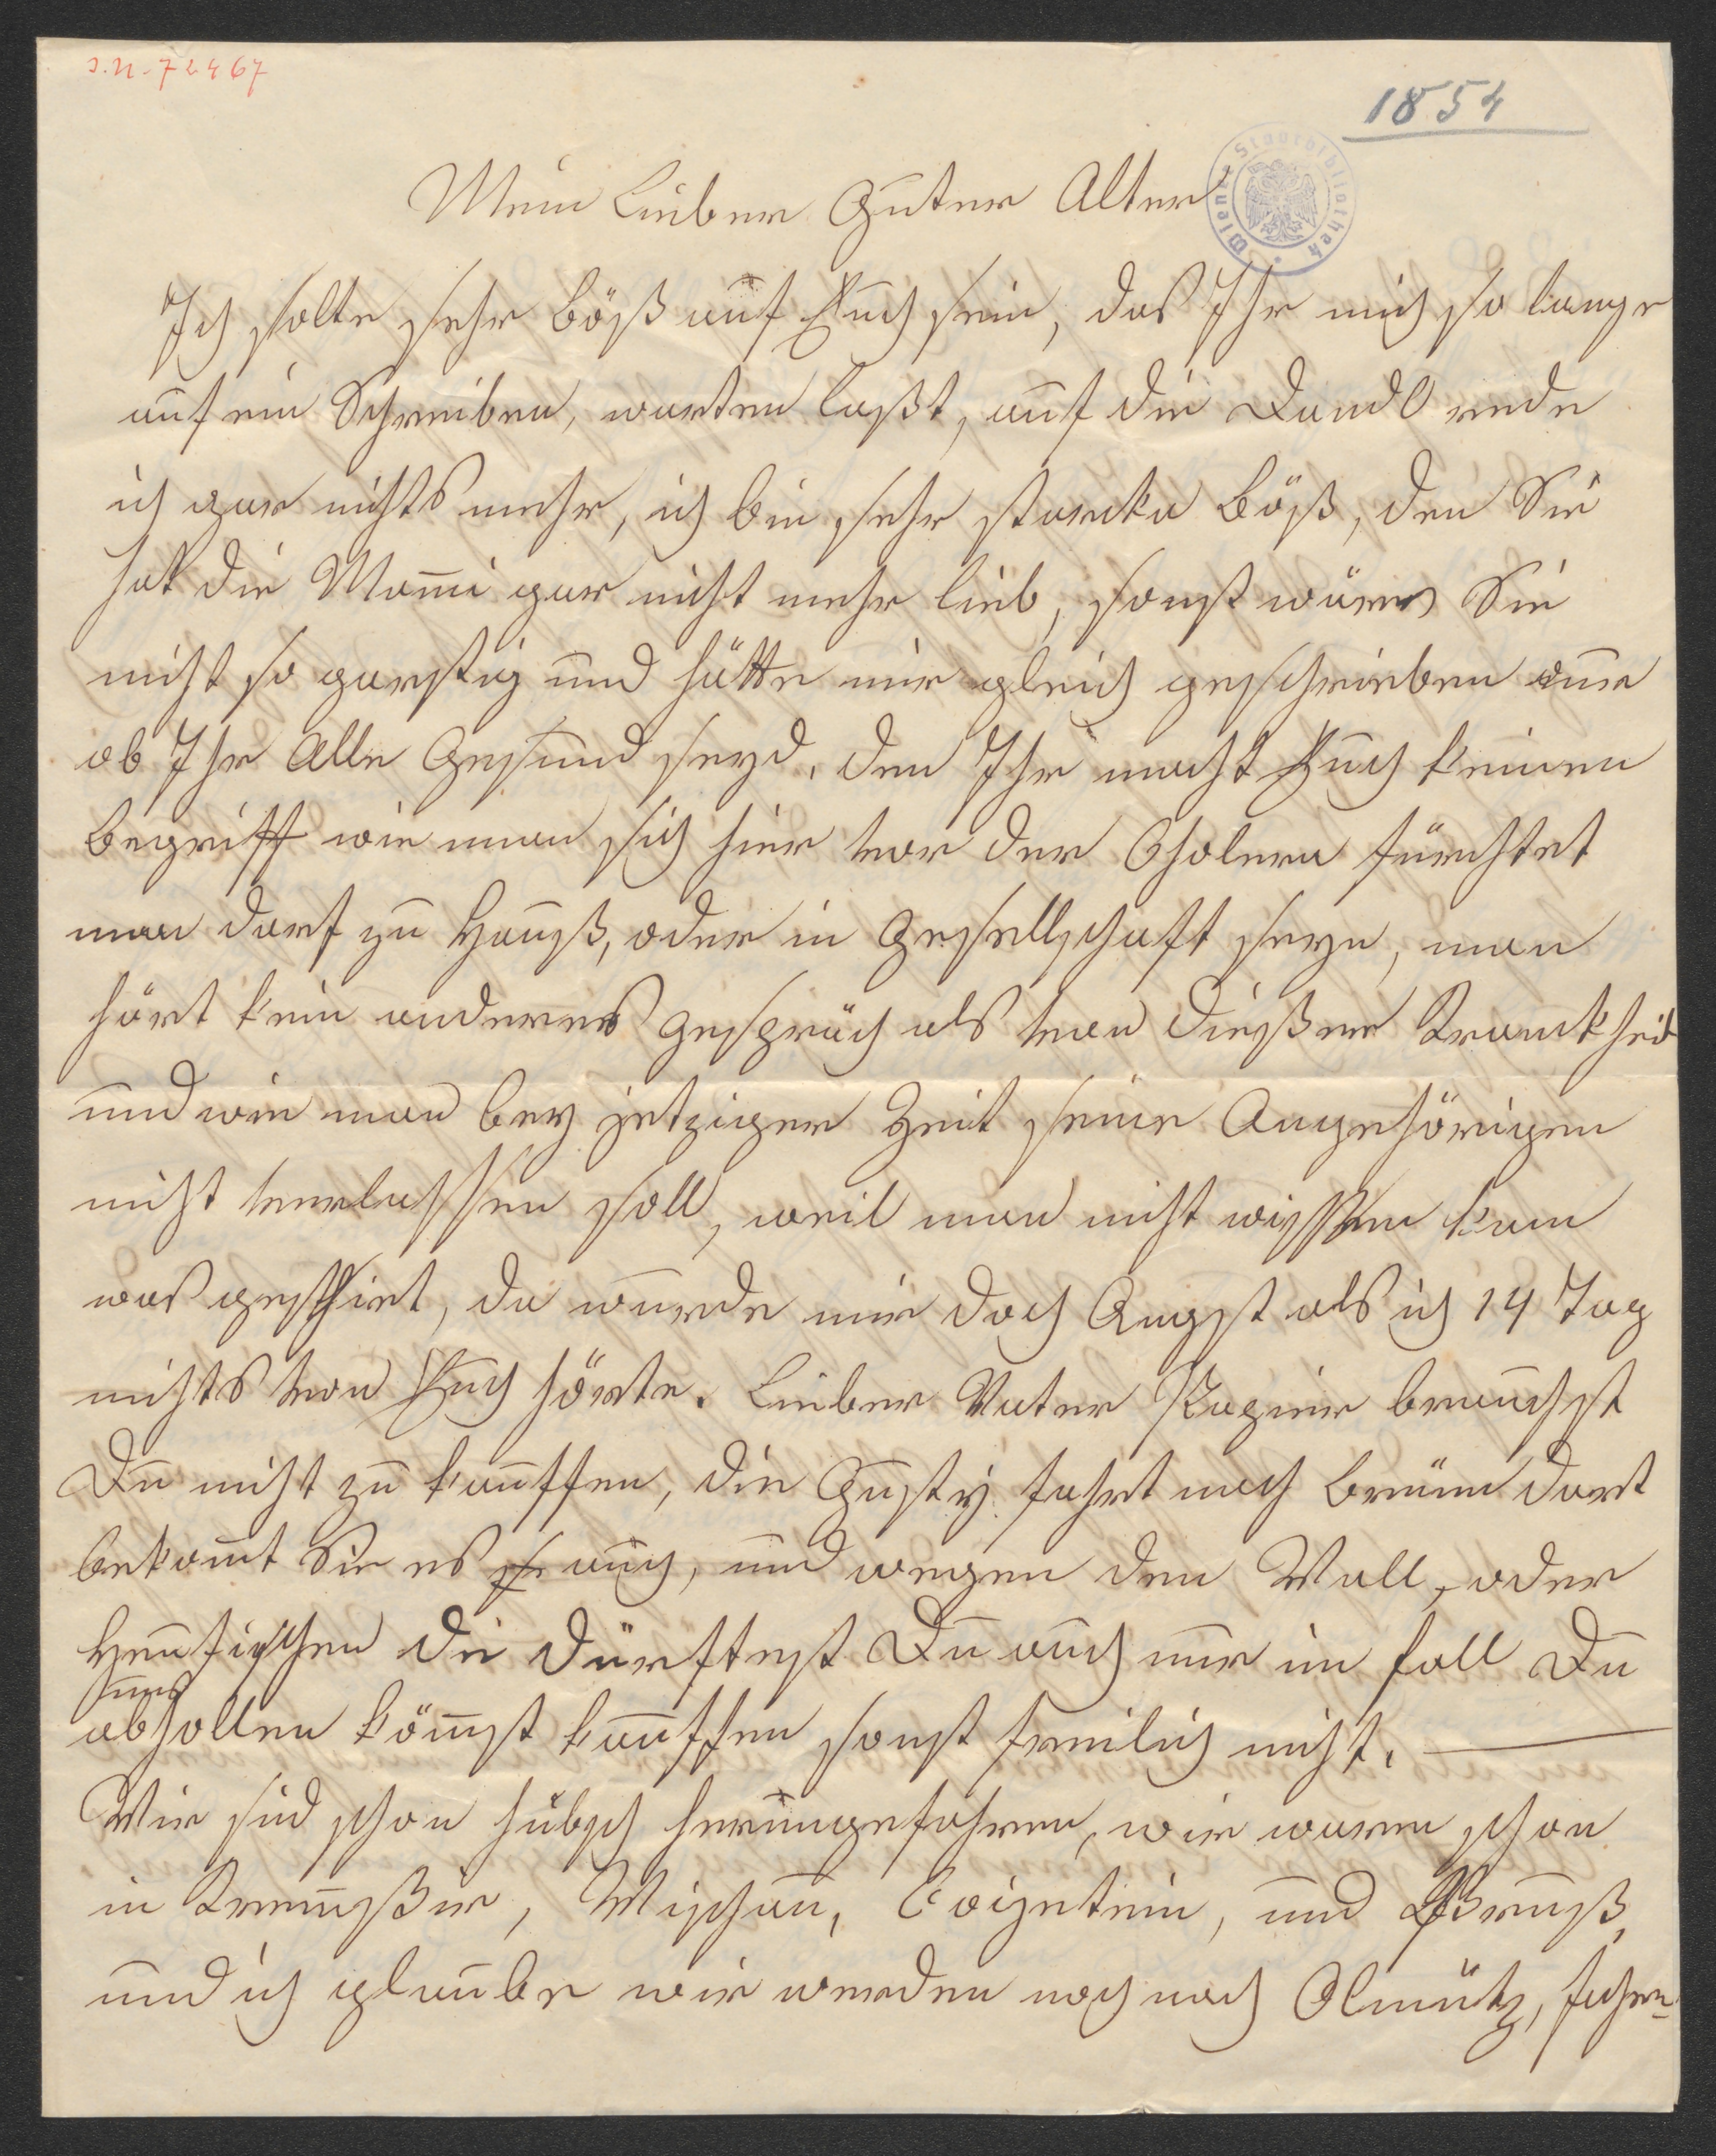 J.N. 72467
1854
Wiener Stadtbibliothek
Mein Lieber Guter Alter
Ich solte sehr Böß auf Euch sein, das Ihr mich so lange
auf ein Schreiben, warten laßt, auf die Dandl rede
ich gar nichts mehr, ich bin sehr starcke Böß, den Sie
hat die Mami gar nicht mehr lieb, sonst wären Sie
nicht so garstig und hätte mir gleich geschrieben
ob Ihr Alle Gesund seyd, den Ihr macht Euch keinen
Begriff wie man sich hier vor der Cholera fürchtet
man darf zu Hauß, oder in Gesellschaft seyn, man
hört kein anderes Gespräch als von dießer Kranckheit
und wie man bey jetziger Zeit seine Angehörigen
nicht verlassen soll, weil man nicht wissen kan
was geschiet, da wurde mir doch Angst als ich 14 Tag
nichts von Euch hörte. Lieber Vater Papier brauchst
Du nicht zu kauffen, die Gusty fahrt nach Brünn dort
bekomt Sie es auch, und wegen den Wall, oder
die dürftest Du auch nur im fall Du
uns
abhollen kömst kauffen sonst freilich nicht.
Wir sind schon hübsch herumgefahren, wir waren schon
in Kremsßir, Wischau, Eoigntein, und
und ich glaube wir werden noch nach Olmütz, fahren